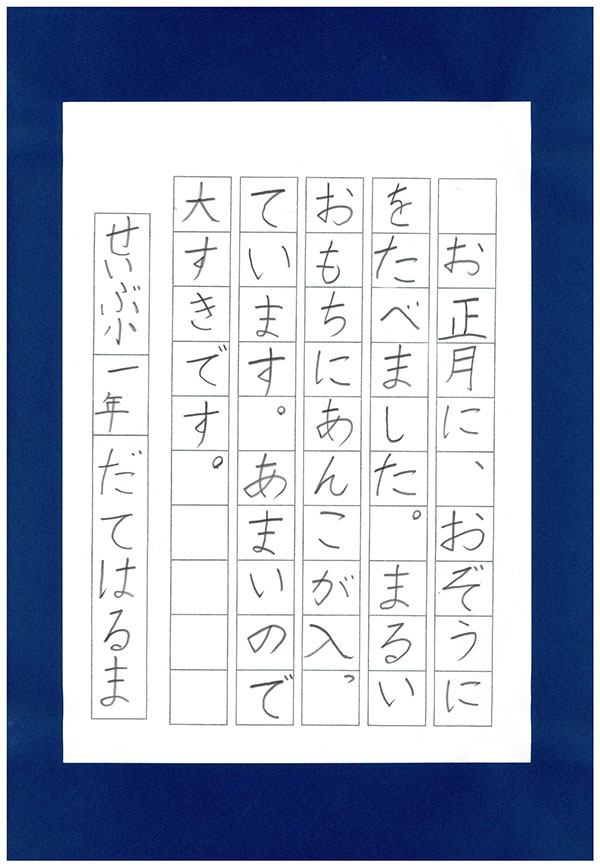 お正月に、おぞうに
をたべました。まるい
おもちにあんこが入っ
ています。あまいので
大すきです。
せいぶ小 一年 だてはるま